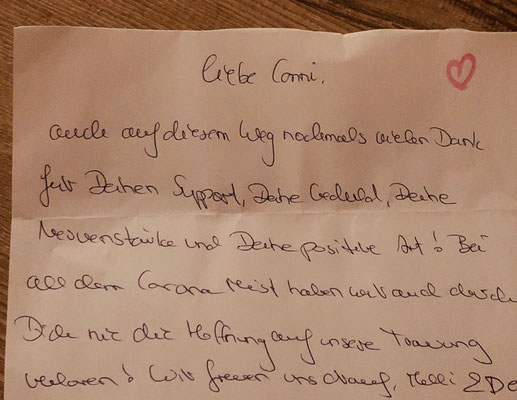 liebe Conni,
auch auf diesem Weg nochmals vielen Dank
für Deinen Support, Deine Geduld, Deine
Nervenstärke und Deine positive Art! Bei
all dem Corona Mist haben wir auch durch
Dich nie die Hoffnung auf unsere Trauung
verloren! Wir freuen uns drauf, Melli & De